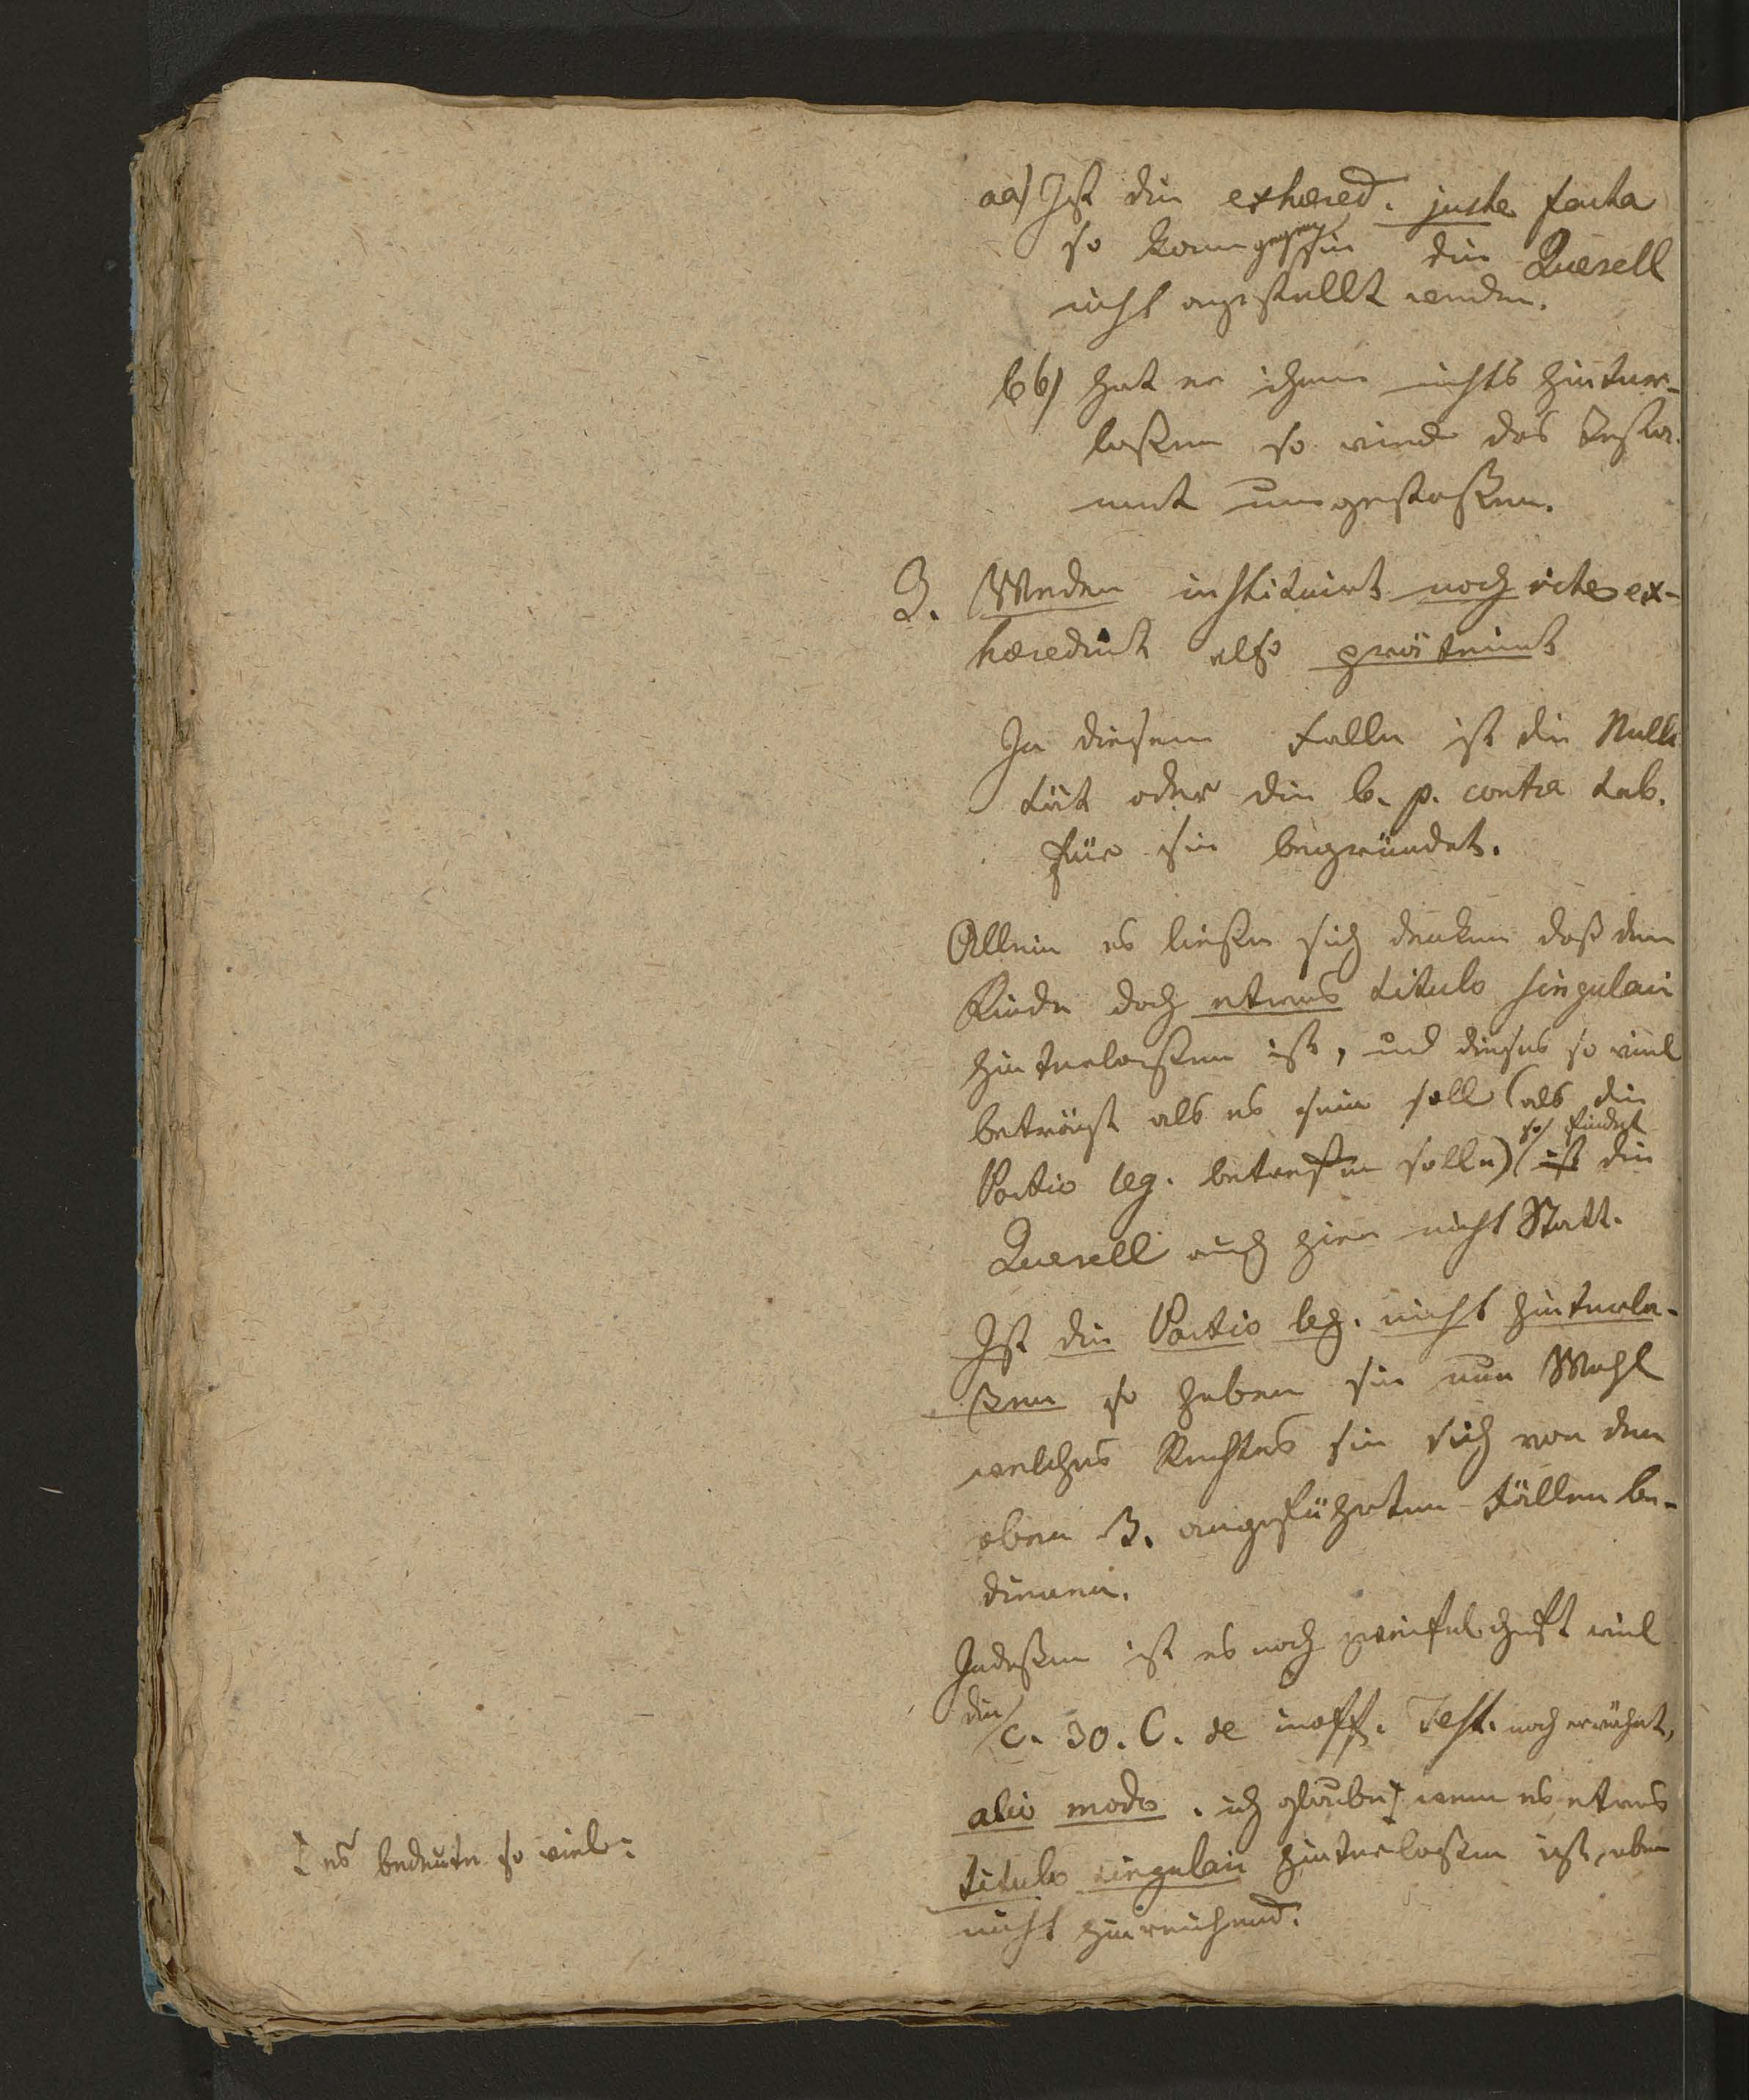 aa) Ist die exhæred. juste facta
so kann gegen sie die Querell
nicht angestellt werden.
bb) hat er ihnen nichts hinter-
laßen so wird das Testa-
ment umgestoßen.
3. Weder instituirt noch rite ex-
hæredirt also präterirt
In diesem Falle ist die Nulli
tät oder die b. p. contra tab.
für sie begründet.
Allein es ließe sich denken daß dem
Kinde doch etwas titulo singulari
hinterlaßen ist, und dieses so viel
beträgt als es sein soll (als die
Portio leg. betreffen solle) so findet ist die
Querell auch hier nicht Statt.
Ist die Portio leg. nicht hinterla-
ßen so haben sie nun Wahl
welches Rechtes sie sich von den
oben B. angeführten Fällen be-
dienen.
Indeßen ist es noch zweifelhaft weil
die c. 30. C. de inoff. Test. noch erwähnt,
alio modo. ich glaube, wenn es etwas
titulo singulari hinterlaßen ist, aber
nicht hinreichend.
es bedeute so viel: